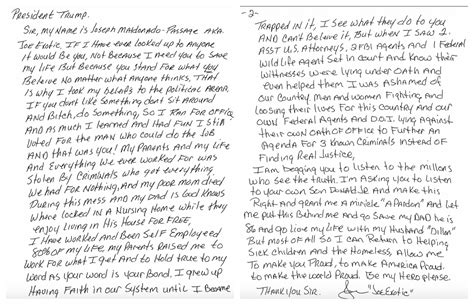 President Trump.
Sir, my name is Joseph Maldonado-Passage AKA.
Joe Exotic, If I have ever looked up to anyone
it would be you, Not because I need you to save
my life But because you stand for what you
Believe No matter what anyone thinks, that
is why I took my beliefs to the political arena,
If you dont like something dont sit around
and Bitch, do something, so I ran for office
and as much I learned and Had fun I still
voted for the man who could do the job
and that was you! My parents and my life
and everything we ever worked for was
stolen by criminals who got everything
we had for nothing, and my poor mom died
during this mess and my dad is God knows
where locked in a nursing home while they
enjoy living in his house for free,
I have worked and been self employeed
80% of my life, my parents raised me to
work for what I get and to hold true to my
word as your word is your bond, I grew up
Having faith in our system until I became
-2-
Trapped in it, I see what they do to you
and can't believe it, But when I saw 2.
Asst U.S. Attorneys, 2 FBI Agents and 1 Federal
Wild life agent set in court and know their
witnesses were lying under oath and
even helped them I was ashamed of
our country, Men and women fighting, and
loosing their lives for this country and our
own Federal Agents and D.O.J. lying against
their own oath of office to further an
agenda for 3 known criminals instead of
finding real justice,
I am begging you to listen to the millons
who see the truth, I'm asking you to listen
to your own son Donald Jr. and make this
right and grant me a miricle "a Pardon" and let
me put this behind me and go save my dad he is
86 and go live my life with my husband "Dillon"
But most of all so I can return to helping
sick children and the homeless, allow me
to make you proud, to make America proud
to make the world proud. Be my hero please.
Thank you Sir.
"Joe Exotic"